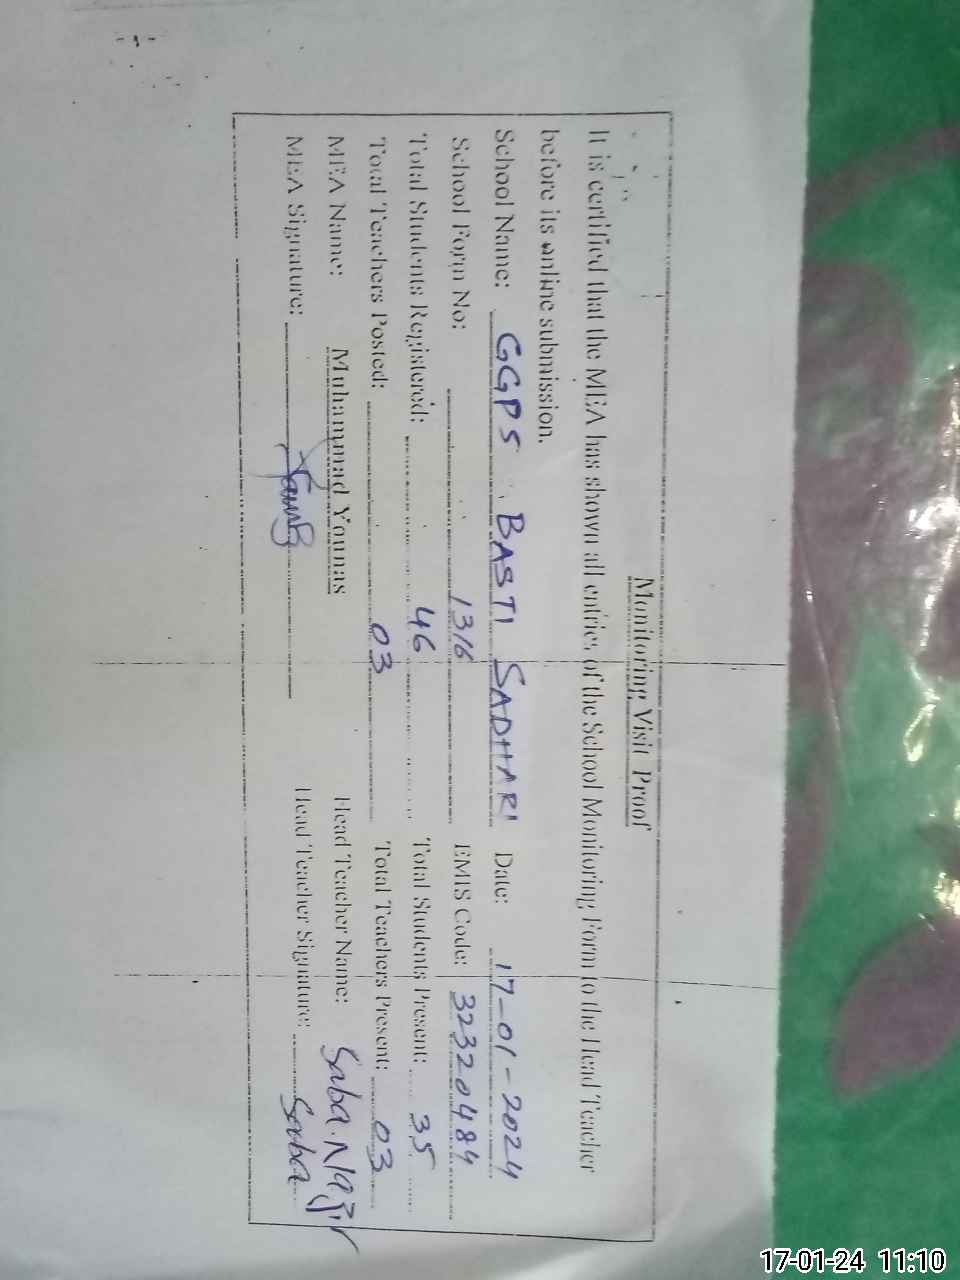 Monitoring Visit Proof
It is certified that the MEA has shown all entries of the School Monitoring Form to the Head Teacher
before is online submission.
School Name: GGPS BASTI SADHARI Date: 17-01-2024
School Form No: 1316 EMIS Code: 32320484
Total Students Registered: 46 Total Students Present: 35
Total Teachers Posted: 03 Total Teachers Present: 03
MEA Name: Muhammad Younas Head Teacher Name: Saba Nazir
MEA Signature: Head Teacher Signature: Saba
17-01-24 11:10